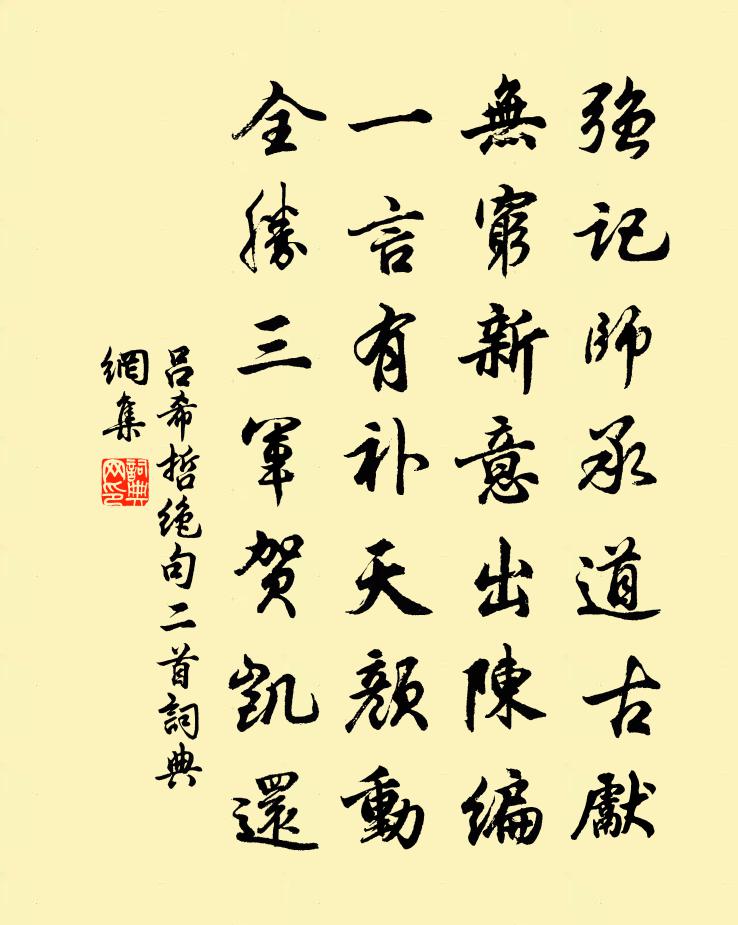 强記師承道古獻
無窮新意出陳編
一言有补天顔動
全勝三軍贺凱還
吕希哲绝句二首詞典
網集
詞典
网印